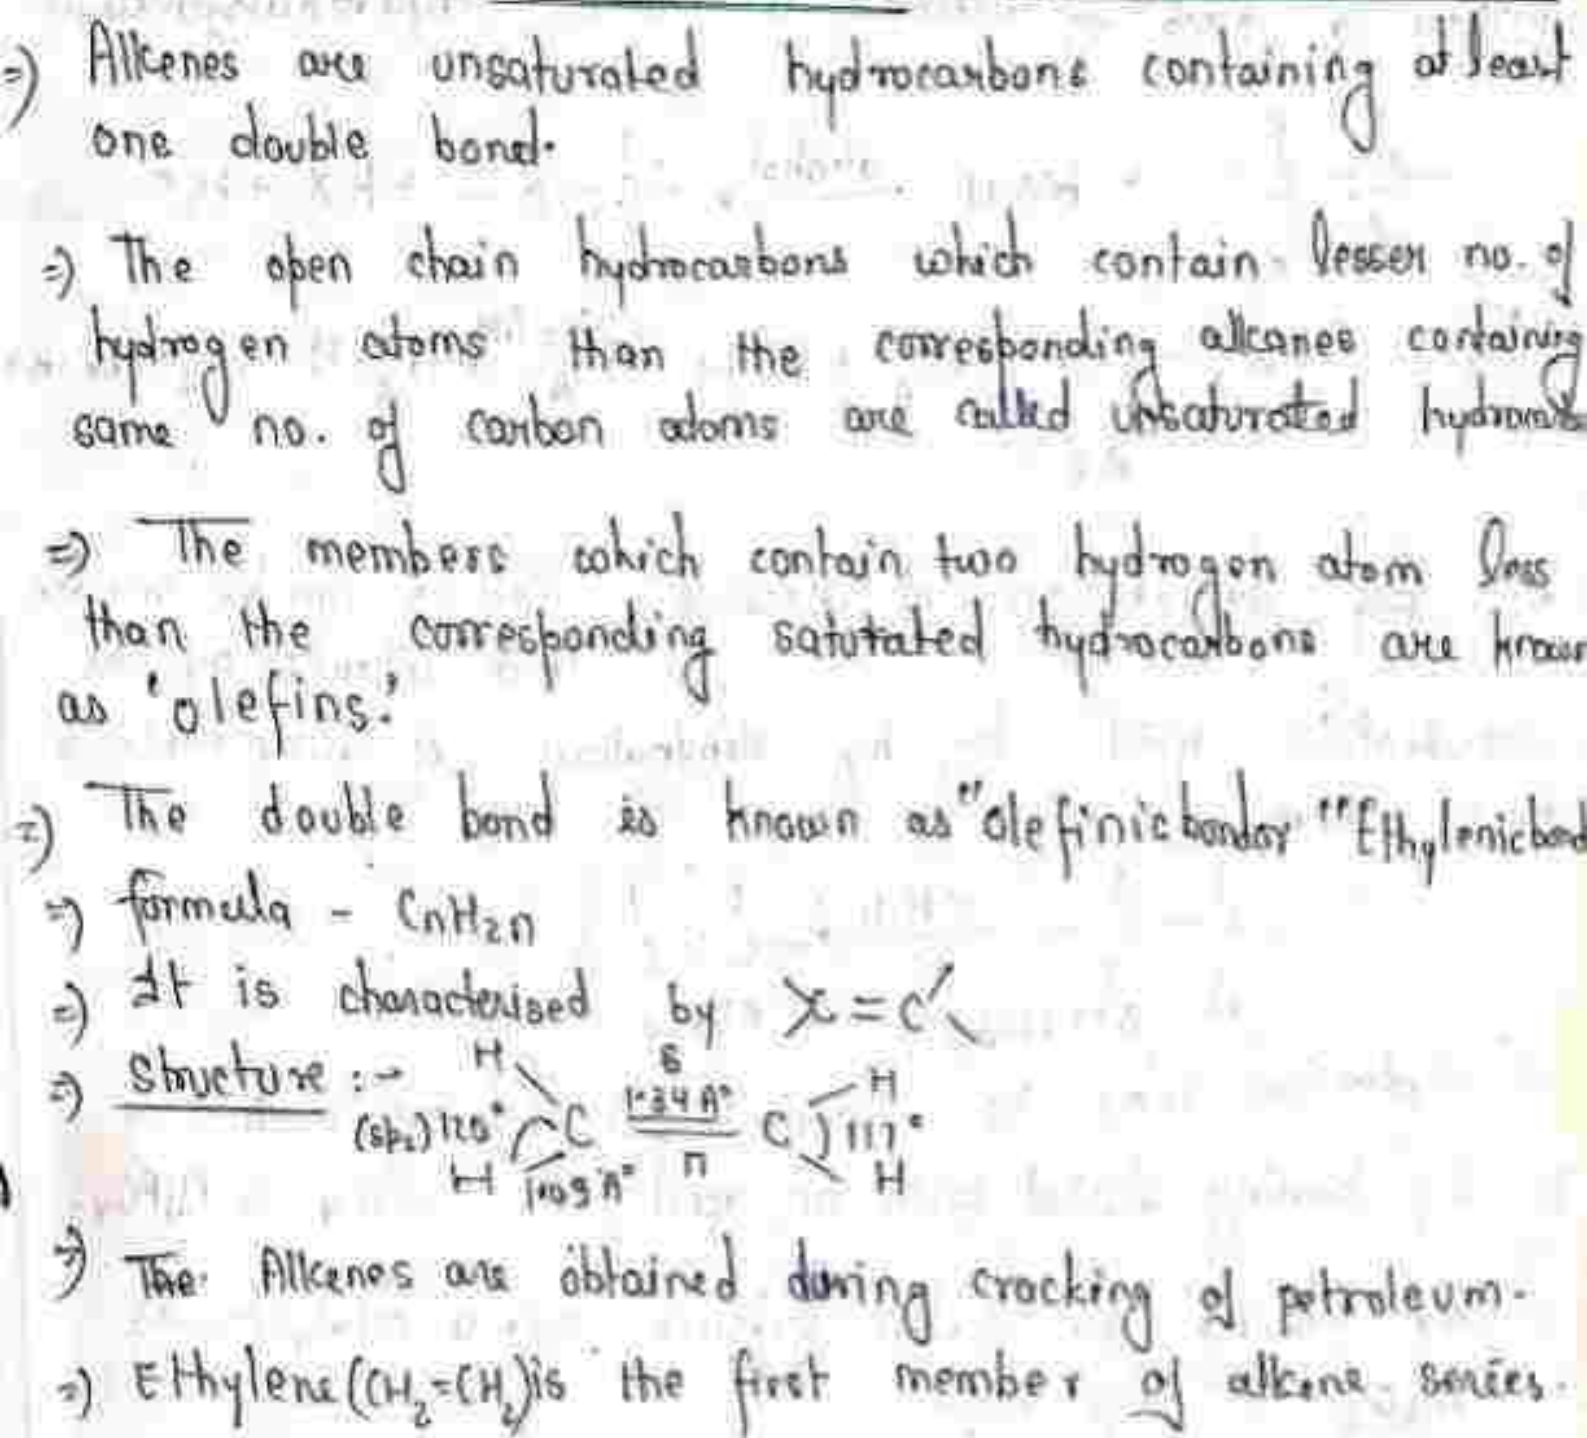 =) Alkenes are unsaturated hydrocarbons containing at least
one double bond.
=) The open chain hydrocarbons which contain lesser no. of
hydrogen atoms than the corresponding alkanes containing
same no. of carbon atoms are called unsaturated
=) The members which contain two hydrogen atom less
than the corresponding satutated hydrocarbons are known
as 'olefins.'
=) The double bond is known as "olefinic bond or "Ethylenic bond
=) formula - CnH2n
=) It is characterised by >C=C<
=) Structure :-
H H
δ
(sp2) 120° C 1.34 A° C 117°
H 1.09 A° π H
=) The Alkenes are obtained during cracking of petroleum.
=) Ethylene (CH2=CH2) is the first member of alkene series.